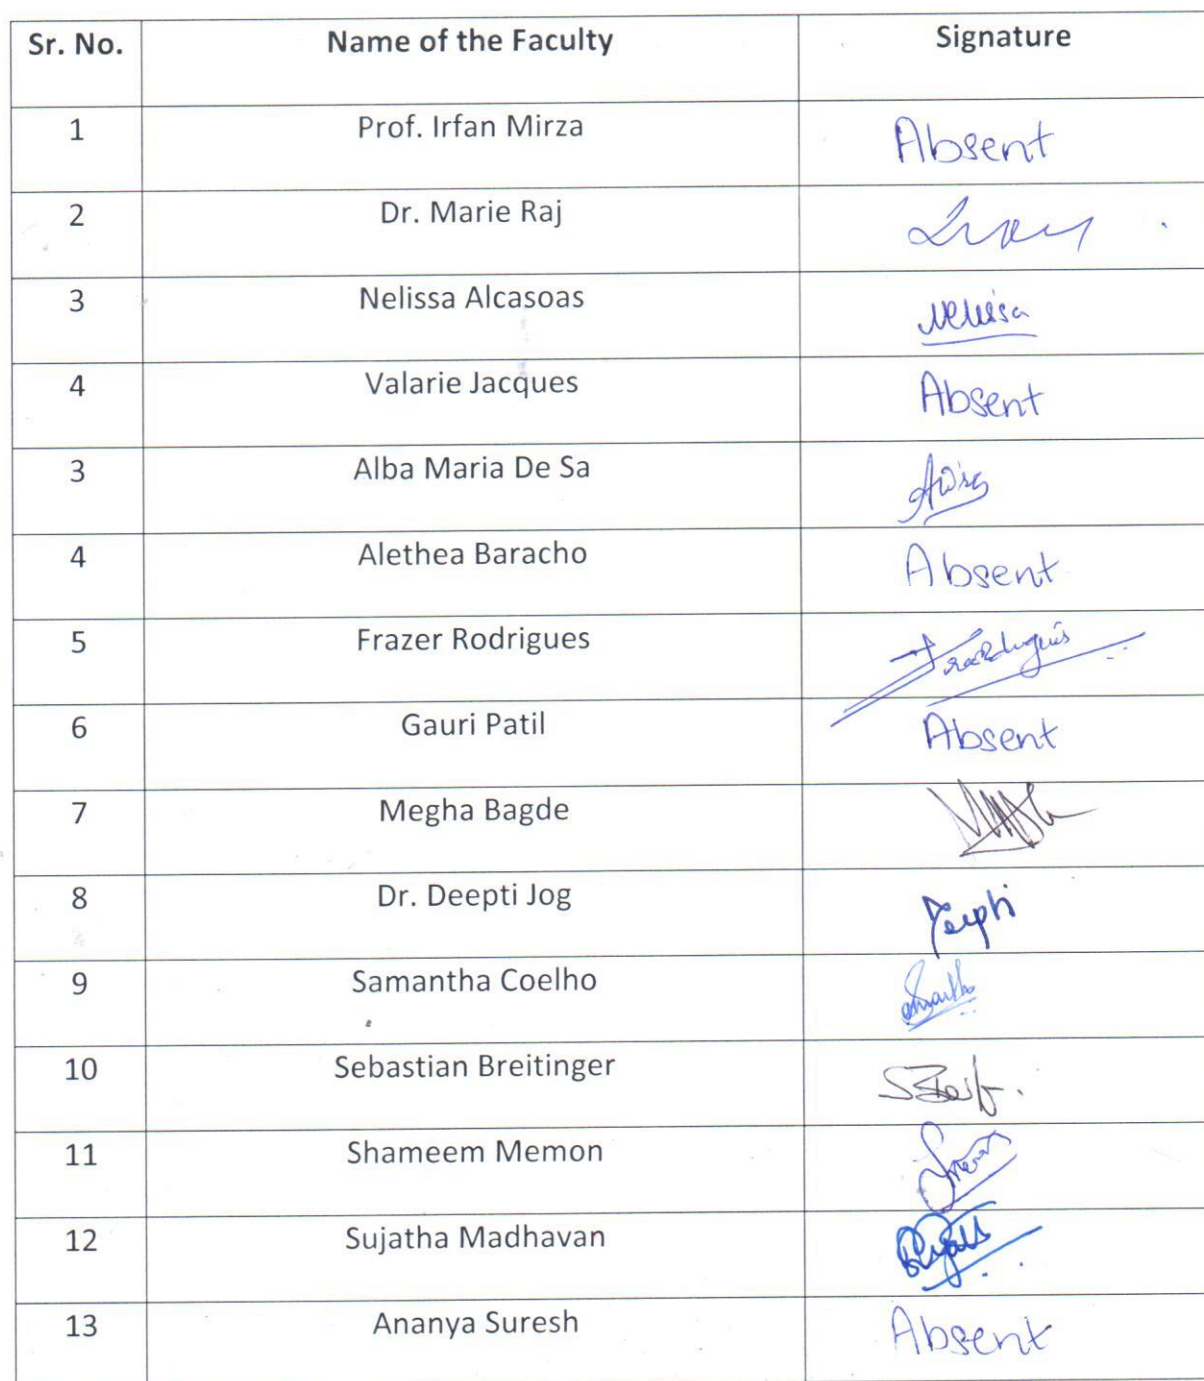 Sr. No. Name of the Faculty Signature
1 Prof. Irfan Mirza Absent
2 Dr. Marie Raj
3 Nelissa Alcasoas Nelissa
4 Valarie Jacques Absent
3 Alba Maria De Sa
4 Alethea Baracho Absent
5 Frazer Rodrigues
6 Gauri Patil Absent
7 Megha Bagde
8 Dr. Deepti Jog Deepti
9 Samantha Coelho
10 Sebastian Breitinger
11 Shameem Memon
12 Sujatha Madhavan
13 Ananya Suresh Absent